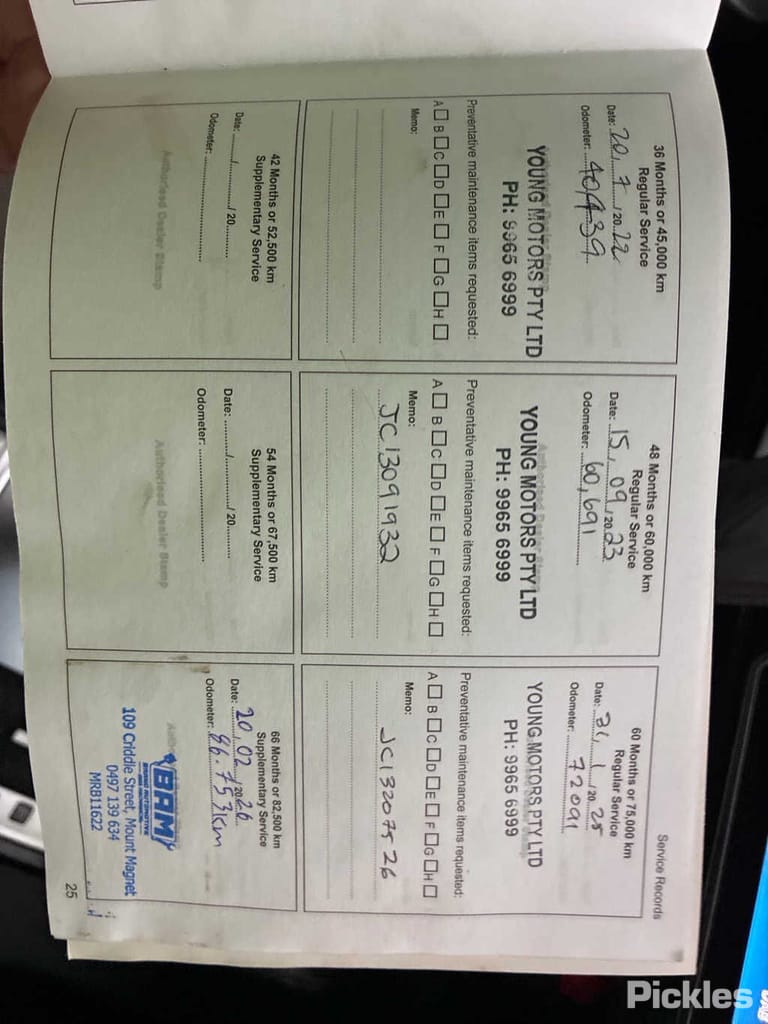 Service Records
36 Months or 45,000 km
Regular Service
Date: 20, 7, /20 22
Odometer: 40,439
YOUNG MOTORS PTY LTD
PH: 9965 6999
Preventative maintenance items requested:
A B C D E F G H
Memo:
48 Months or 60,000 km
Regular Service
Date: 15, 09, /20 23
Odometer: 60,691
YOUNG MOTORS PTY LTD
PH: 9965 6999
Preventative maintenance items requested:
A B C D E F G H
Memo:
JC13091932
60 Months or 75,000 km
Regular Service
Date: 31, 1, /20 25
Odometer: 72091
YOUNG MOTORS PTY LTD
PH: 9965 6999
Preventative maintenance items requested:
A B C D E F G H
Memo:
JC13207526
42 Months or 52,500 km
Supplementary Service
Date: / / 20
Odometer:
Authorised Dealer Stamp
54 Months or 67,500 km
Supplementary Service
Date: / / 20
Odometer:
Authorised Dealer Stamp
66 Months or 82,500 km
Supplementary Service
Date: 20, 02, /20 26
Odometer: 86.753km
BAM
109 Criddle Street, Mount Magnet
0497 139 634
MRB11622
25
Pickles